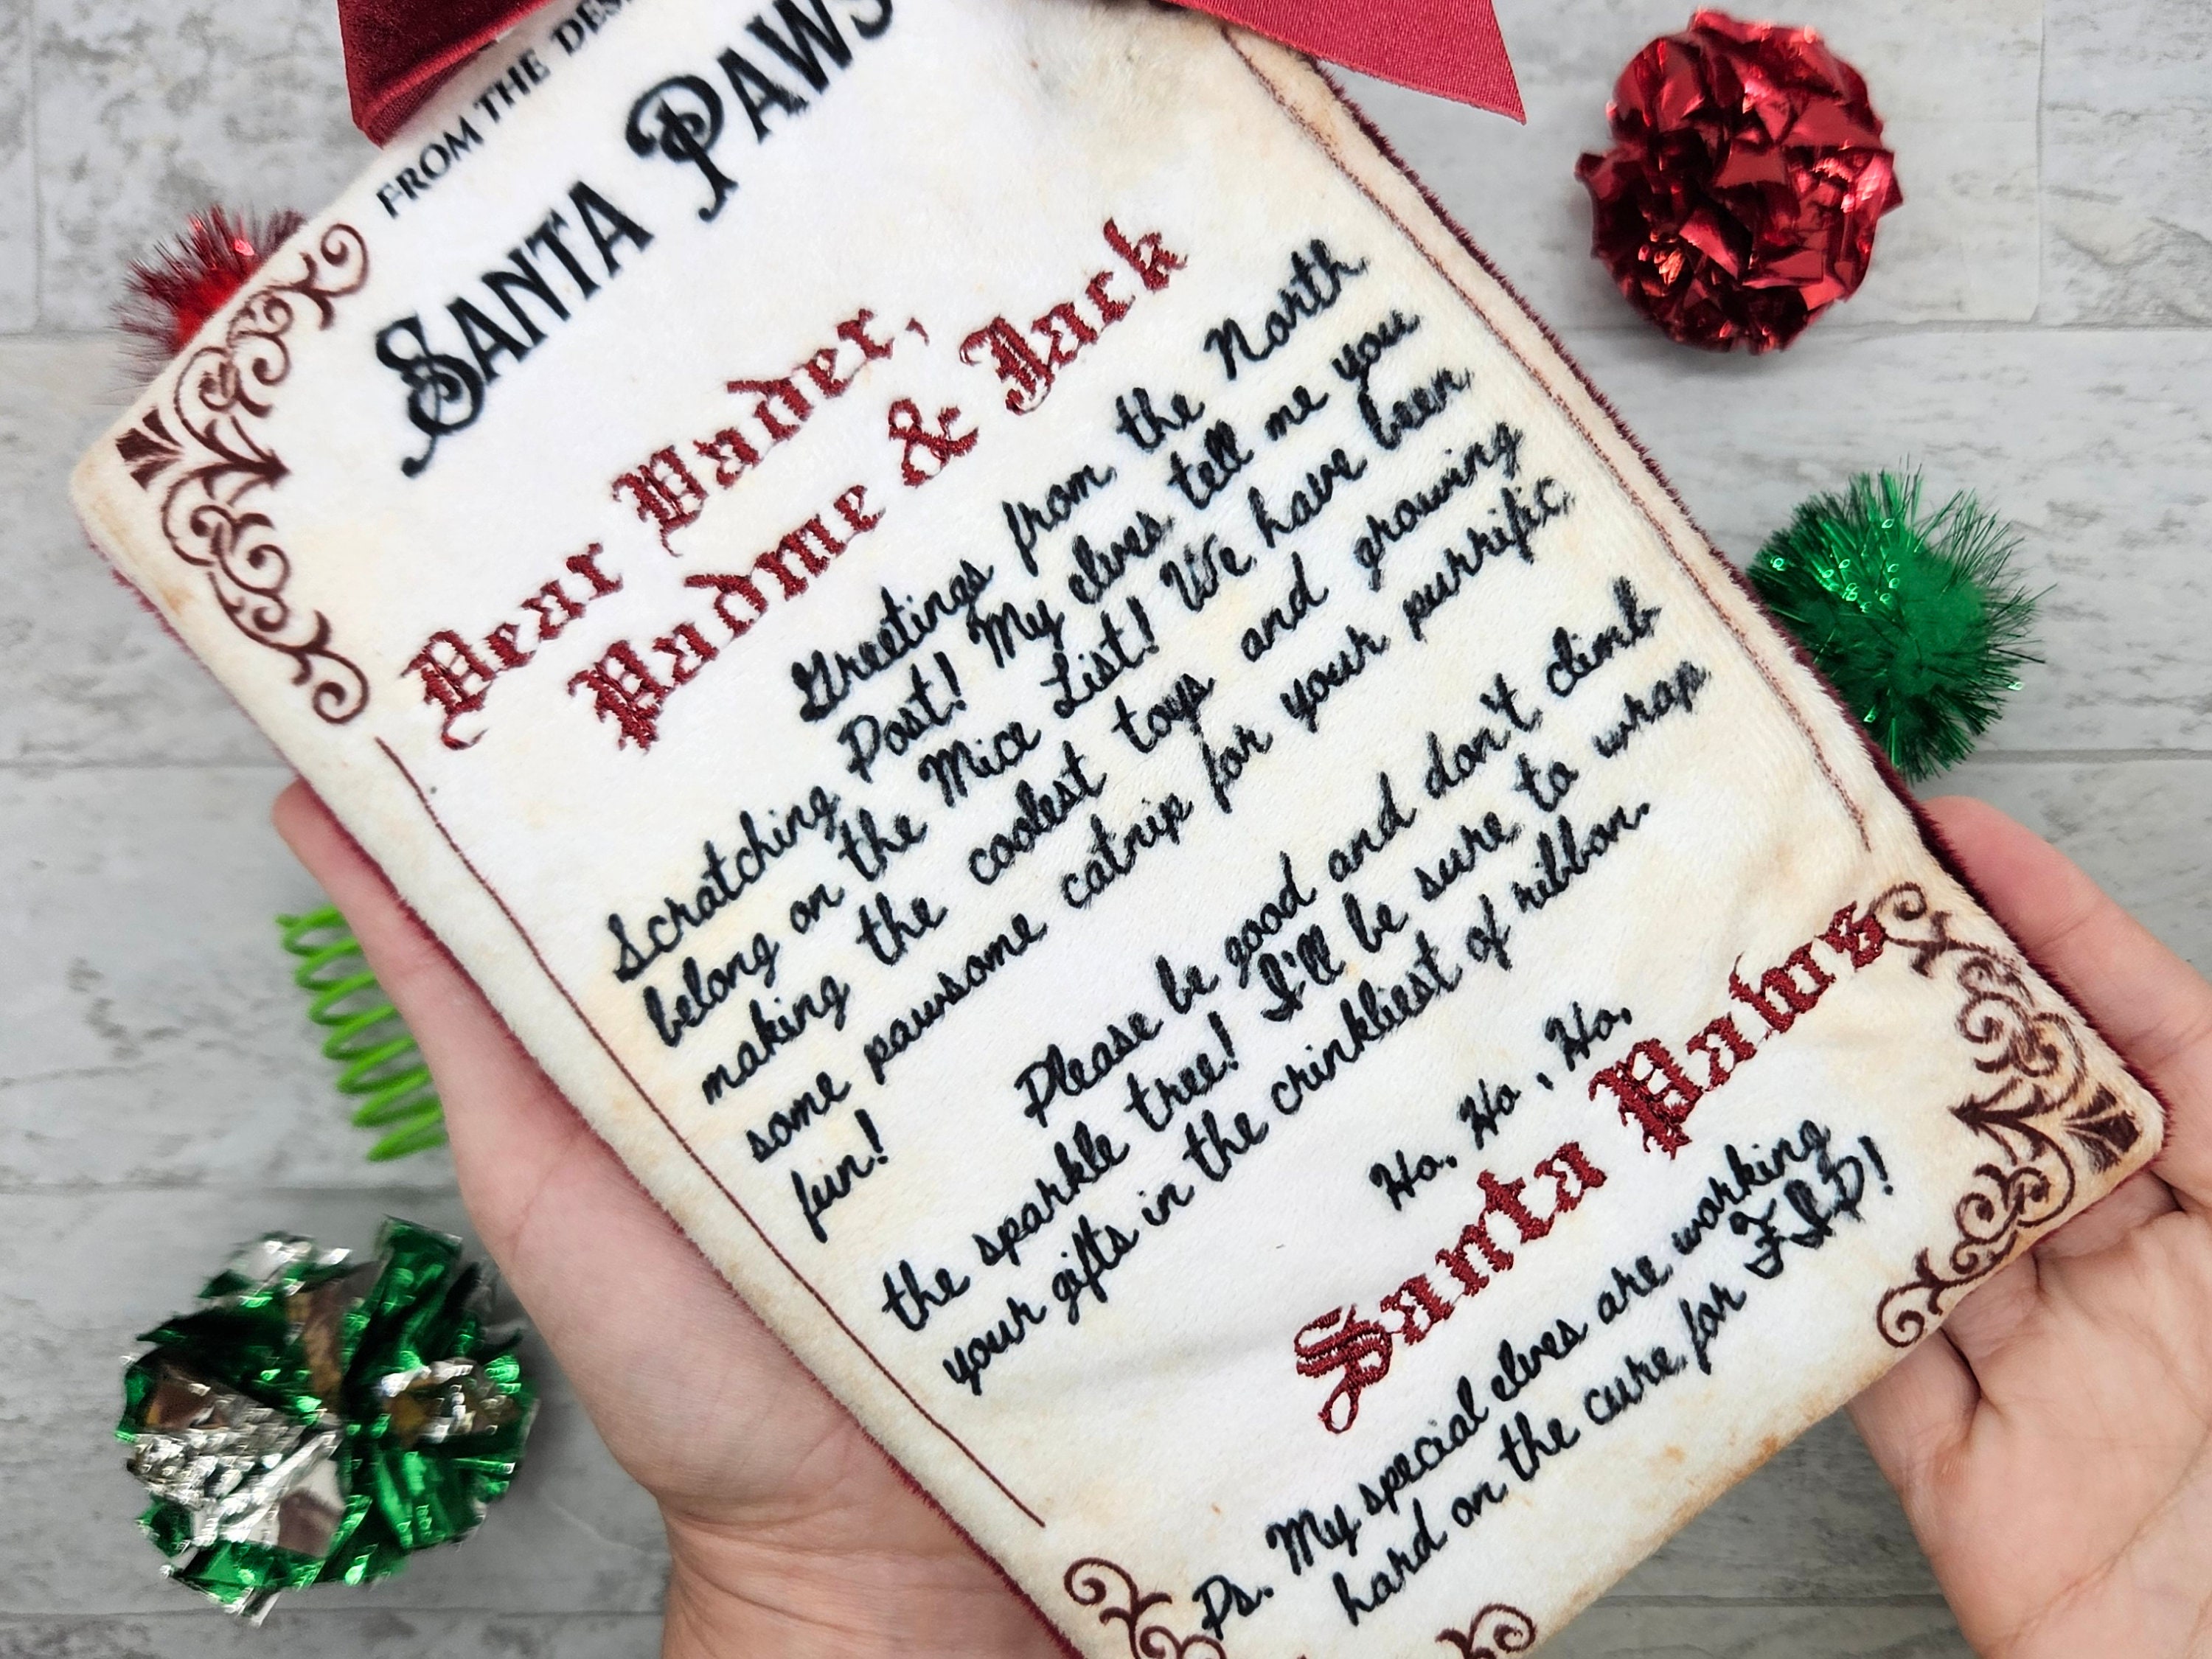 FROM THE DES
SANTA PAWS
Dear Vader,
Padme & Jack
Greetings from the North
Scratching Post! My elves tell me you
belong on the Mice List! We have been
making the coolest toys and growing
some pawsome catnip for your purrific
fun!
Please be good and don't climb
the sparkle tree! I'll be sure to wrap
your gifts in the crinkliest of ribbon.
Ho, Ho, Ho,
Santa Paws
Ps. My special elves are working
hard on the cure for FIP!